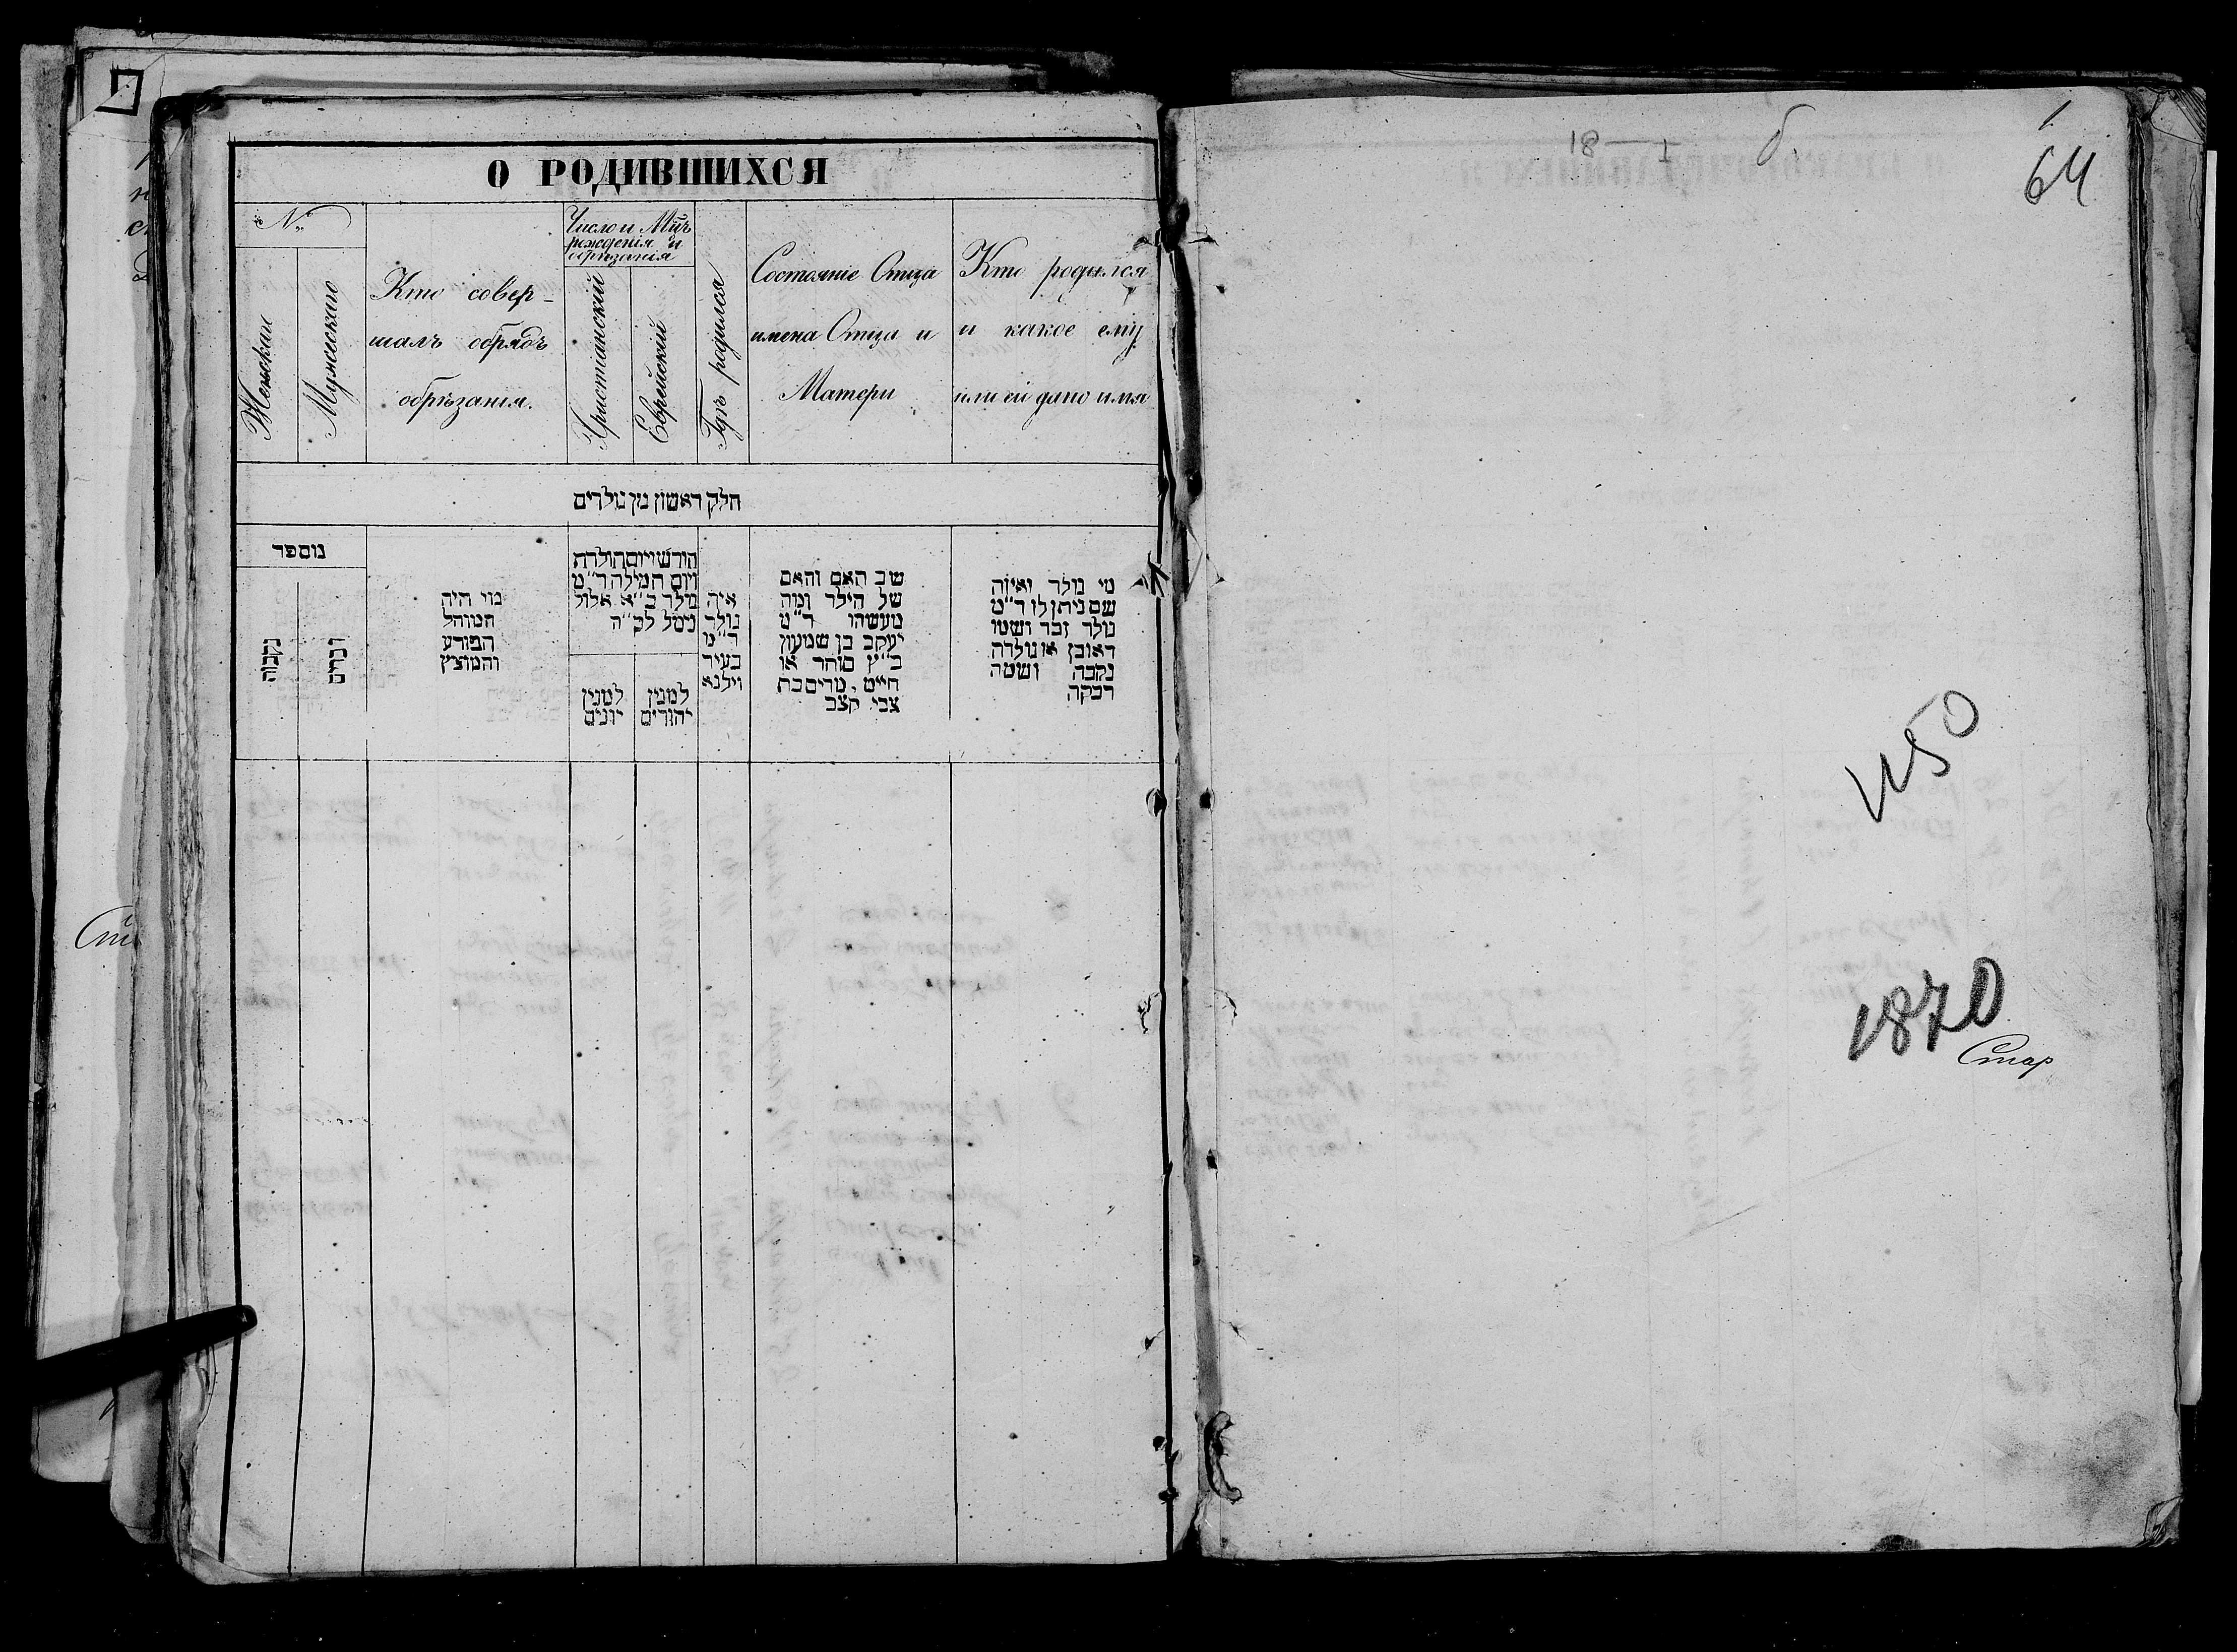 О РОДИВШИХСЯ
№
Женскаго
Мужескаго
Кто совер-
шалъ обрядъ
обрѣзанія.
Число и Мѣць
рожденія и
обрѣзанія
Христіанскій
Еврейскій
Гдѣ родился
Состояніе Отца
имена Отца и
Матери
Кто родился
и какое ему
или ей дано имя
חלק ראשון מן נולדים
מוספר
נקבות
זכרים
מי היה
המוהל
הפורע
והמוצץ
חודש ויום הולדת
ויום המילה ד״מ
נולד כ״א אלול
נימל לכ״ה
למנין
יונים
למנין
יהודים
איה
נולד
ד״מ
בעיר
וילנא
שב האם והאם
של הילד ומה
מעשהו ד״מ
יעקב בן שמעון
כ״ץ סוחר או
חייט, מרים בת
צבי קצב
מי נולד ואיזה
שם ניתן לו ד״מ
נולד זכר ושמו
ראובן או נולדה
נקבה ושמה
רבקה
18—I
б.
64
1150
1870
Стар